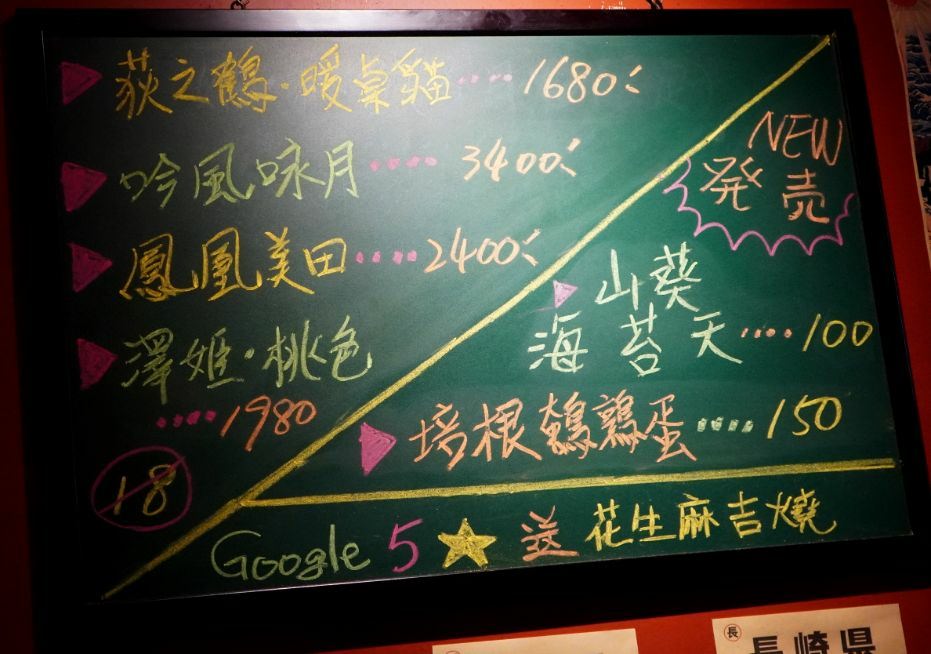 荻之鶴·暖桌貓····1680
吟風咏月····3400
鳳凰美田····2400
澤姫·桃色
····1980
18
NEW
発売
山葵
海苔天····100
培根鵪鶉蛋····150
Google 5★送花生麻吉燒
長 長崎県